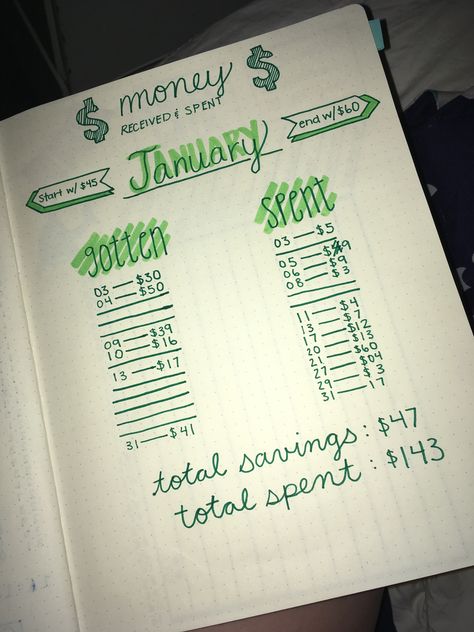 $ money $
RECEIVED & SPENT
Start w/ $45
January
end w/ $60
gotten
03 — $30
04 — $50
09 — $39
10 — $16
13 — $17
31 — $41
spent
03 — $5
05 — $49
06 — $9
08 — $3
11 — $4
13 — $7
17 — $12
20 — $13
21 — $60
27 — $04
29 — $3
31 — 17
total savings: $47
total spent: $143